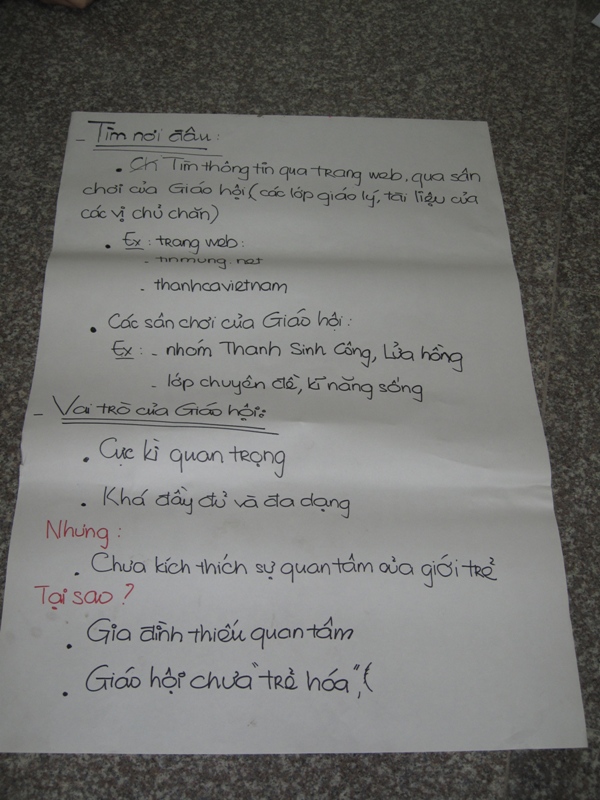 - Tìm nơi đâu:
• Tìm thông tin qua trang web, qua sân
chơi của Giáo hội (các lớp giáo lý, tài liệu của
các vị chủ chăn)
• Ex: trang web:
- tinmung.net
- thanhcavietnam
• Các sân chơi của Giáo hội:
Ex: - nhóm Thanh Sinh Công, Lửa hồng
- lớp chuyên đề, kĩ năng sống
- Vai trò của Giáo hội:
• Cực kì quan trọng
• Khá đầy đủ và đa dạng
Nhưng:
• Chưa kích thích sự quan tâm của giới trẻ
Tại sao?
• Gia đình thiếu quan tâm
• Giáo hội chưa "trẻ hóa", (